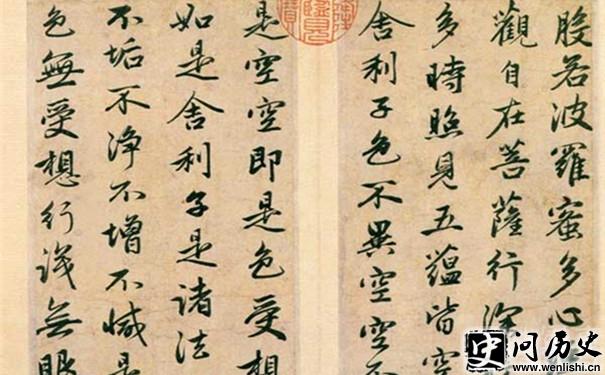 般若波羅蜜多心
觀自在菩薩行深
多時照見五蘊皆空
舍利子色不異空空不
是空空即是色受想
如是舍利子是諸法
不垢不淨不增不減是
色無受想行識無眼
问历史
www.wenlishi.cn